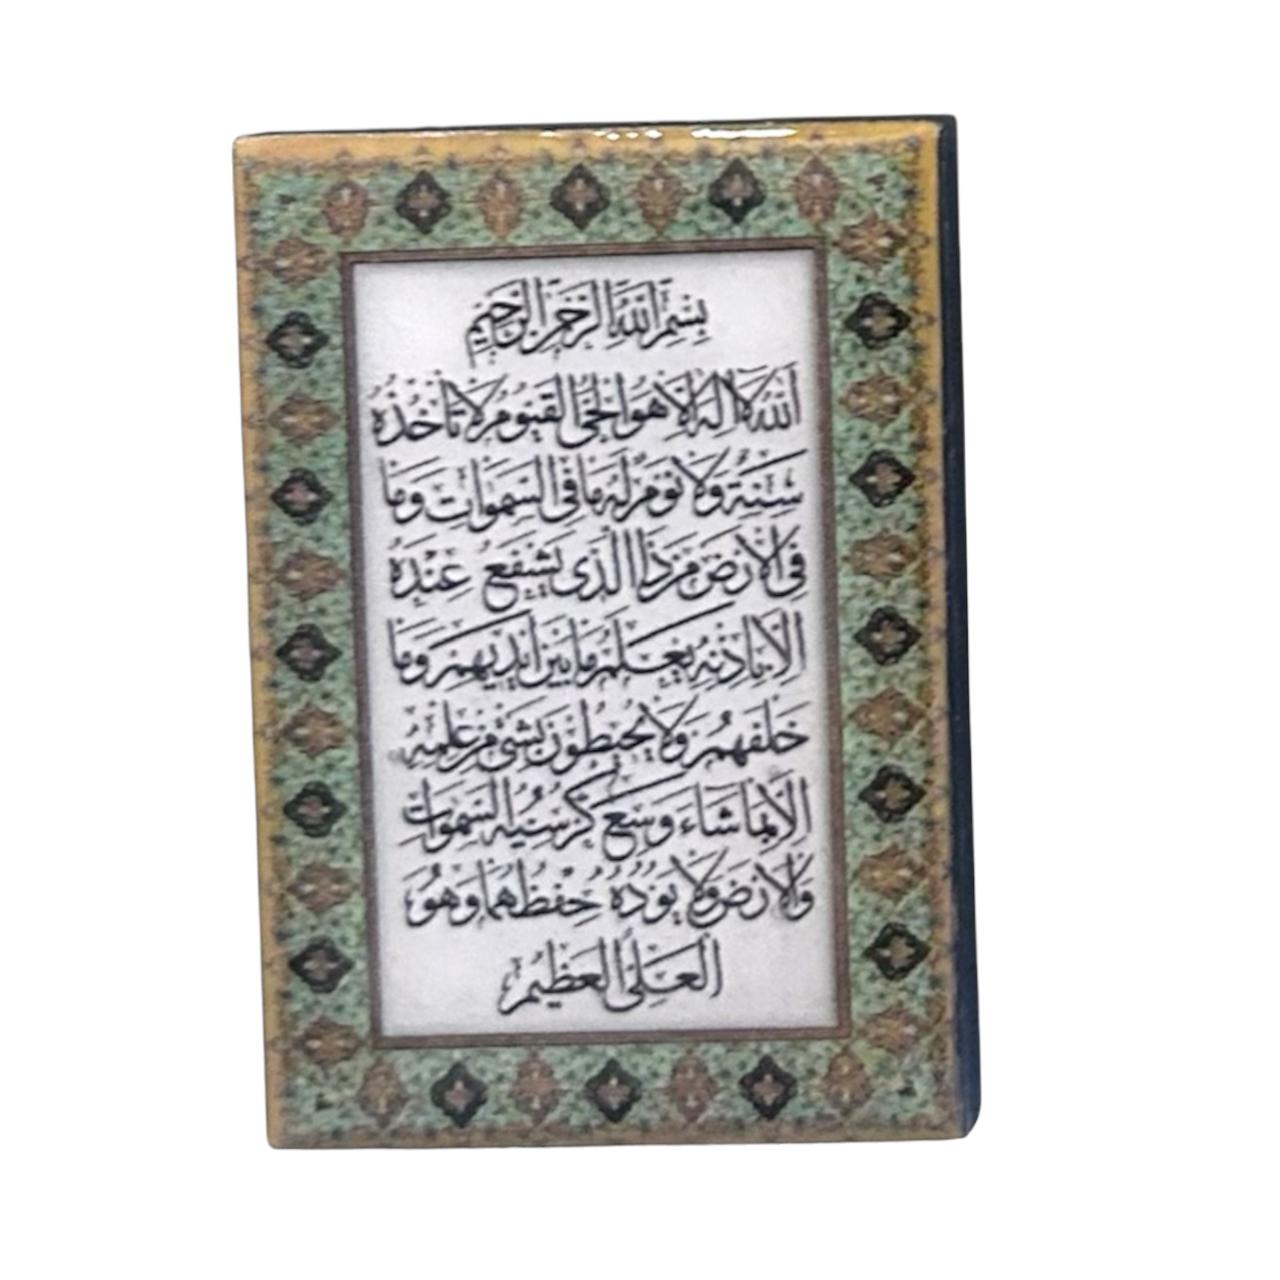 بِسْمِ اللهِ الرَّحْمٰنِ الرَّحِيْمِ
اَللهُ لَا اِلٰهَ اِلَّا هُوَ الْحَيُّ الْقَيُّوْمُ لَا تَأْخُذُهُ
سِنَةٌ وَلَا نَوْمٌ لَهُ مَا فِي السَّمٰوَاتِ وَمَا
فِي الْاَرْضِ مَنْ ذَا الَّذِي يَشْفَعُ عِنْدَهُ
اِلَّا بِاِذْنِهِ يَعْلَمُ مَا بَيْنَ اَيْدِيْهِمْ وَمَا
خَلْفَهُمْ وَلَا يُحِيْطُوْنَ بِشَيْءٍ مِنْ عِلْمِهِ
اِلَّا بِمَا شَاءَ وَسِعَ كُرْسِيُّهُ السَّمٰوَاتِ
وَالْاَرْضَ وَلَا يَؤُدُهُ حِفْظُهُمَا وَهُوَ
الْعَلِيُّ الْعَظِيْمُ